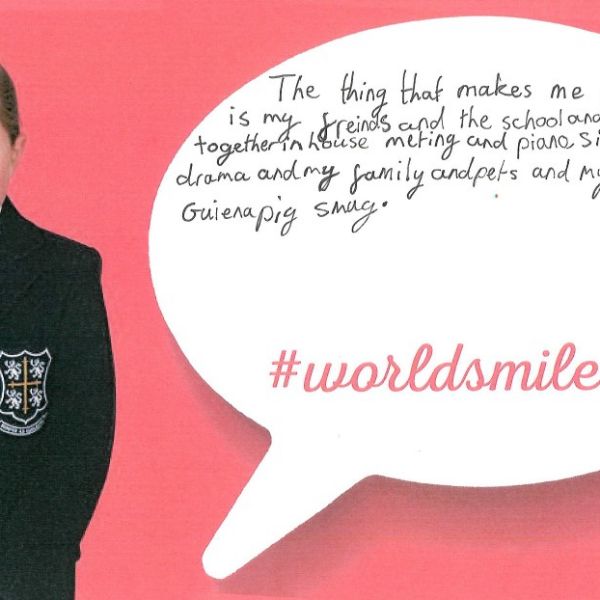 The thing that makes me
is my freinds and the school and
together in house meting and piana si
drama and my family and pets and my
Guienapig smug.
#worldsmile